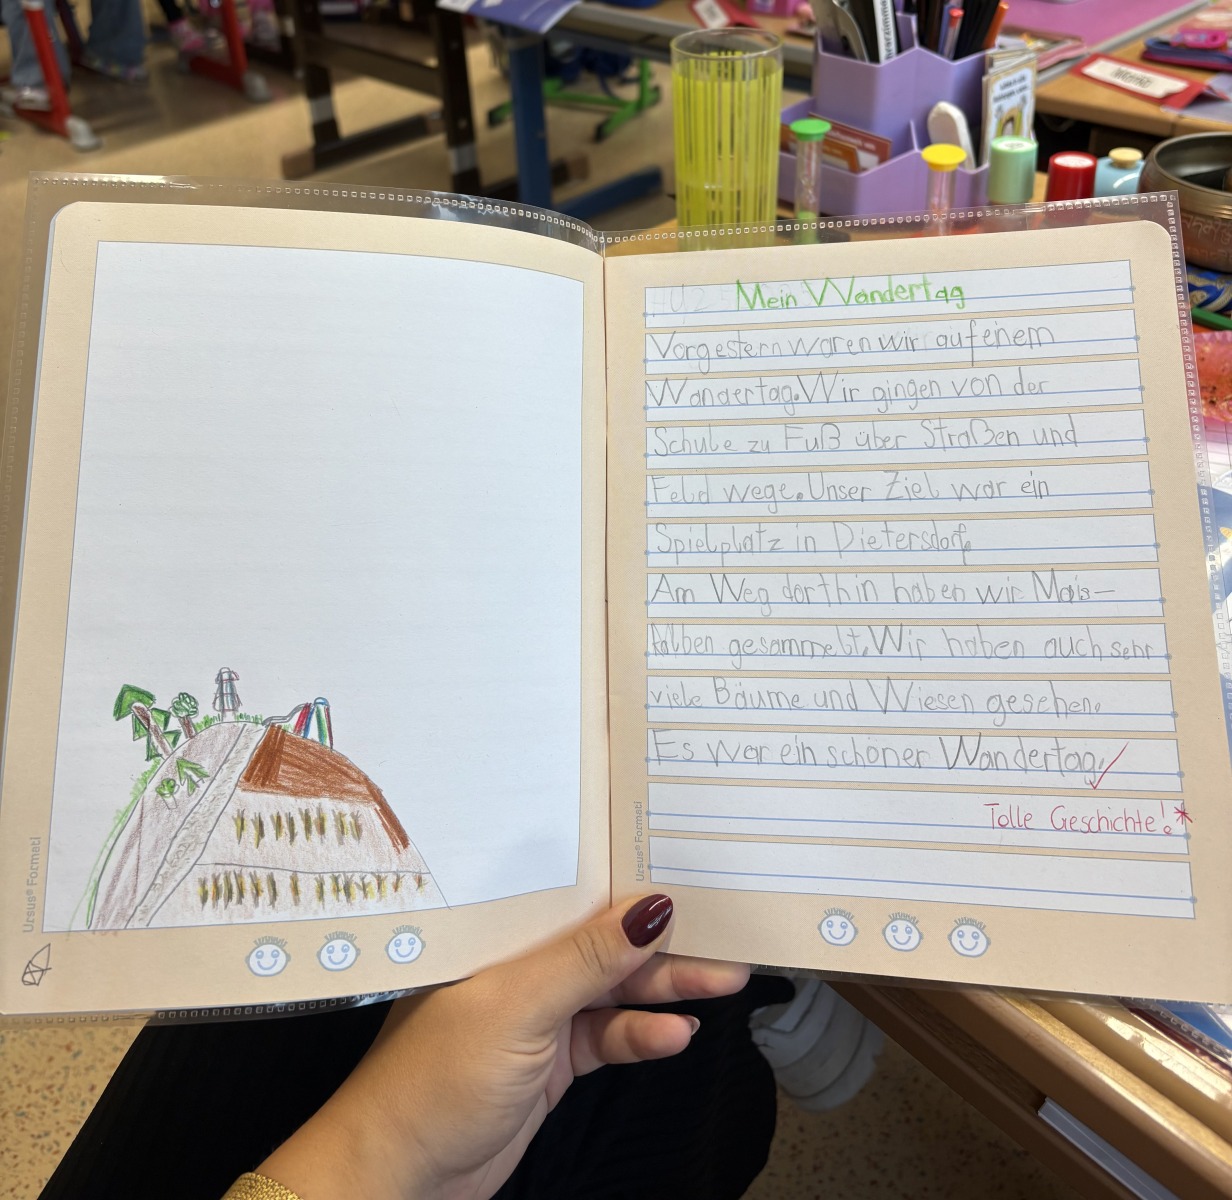 Mein Wandertag
Vorgestern waren wir auf einem
Wandertag. Wir gingen von der
Schule zu Fuß über Straßen und
Feld wege. Unser Ziel war ein
Spielplatz in Dietersdorf.
Am Weg dorthin haben wir Mais-
kolben gesammelt. Wir haben auch sehr
viele Bäume und Wiesen gesehen.
Es war ein schöner Wandertag.
Tolle Geschichte!
Ursus® Formati
Ursus® Formati